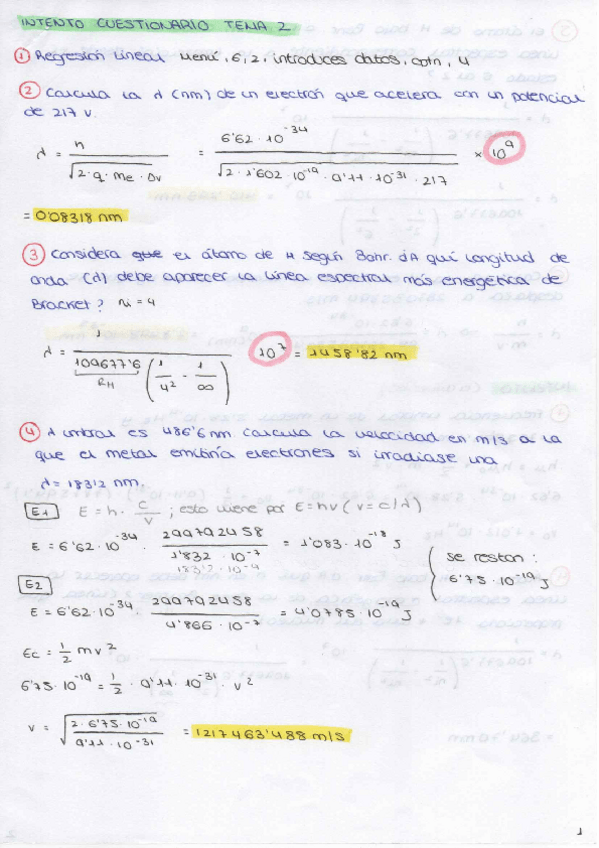 INTENTO CUESTIONARIO TEMA 2
① Regresión lineal menú, 6, 2, introduces datos, optn, 4
② Calcula la λ (nm) de un electrón que acelera con un potencial
de 217 v.
λ = h / √(2·q·me·Δv) = 6'62·10^-34 / √(2·1'602·10^-19·9'11·10^-31·217) × 10^9
= 0'08318 nm
③ Considera que el átomo de H según Bohr. ¿A qué longitud de
onda (λ) debe aparecer la línea espectral más energética de
Bracket? ni = 4
λ = 1 / 109677'6 (1/4² - 1/∞) 10^7 = 1458'82 nm
RH
④ λ umbral es 486'6 nm. Calcula la velocidad en m/s a la
que el metal emitiría electrones si irradiase una
λ = 183'2 nm.
E1 E = h · c/v ; esto viene por E = hv (v = c/λ)
E = 6'62·10^-34 · 299792458 / 1'832·10^-7 = 1'083·10^-18 J
183'2·10^-9
se restan:
6'75·10^-19 J
E2
E = 6'62·10^-34 · 299792458 / 4'866·10^-7 = 4'0785·10^-19 J
Ec = 1/2 mv²
6'75·10^-19 = 1/2 · 9'11·10^-31 · v²
v = √(2·6'75·10^-19 / 9'11·10^-31) = 1217463'488 m/s
1